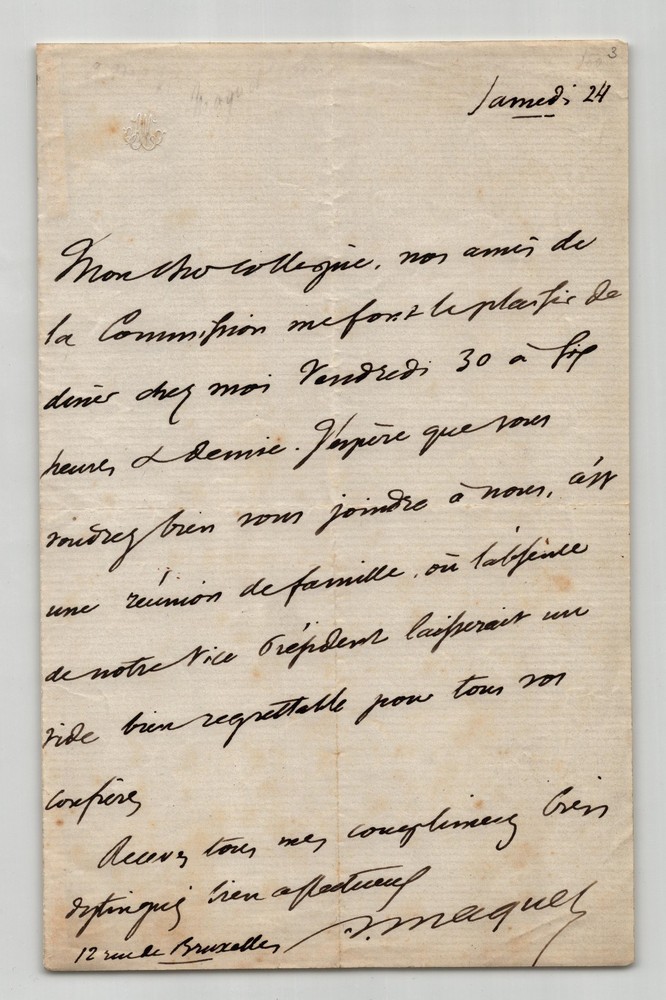 3
Samedi 24
Mon cher collègue, nos amis de
la Commission me font le plaisir de
diner chez moi Vendredi 30 à six
heures & demie. J'espère que vous
voudrez bien vous joindre à nous, c'est
une réunion de famille, où l'absence
de notre Vice Président laisserait un
vide bien regrettable pour tous vos
confrères
Recevez tous mes complimens bien
distingués bien affectueux
A. Maquet
12 rue de Bruxelles